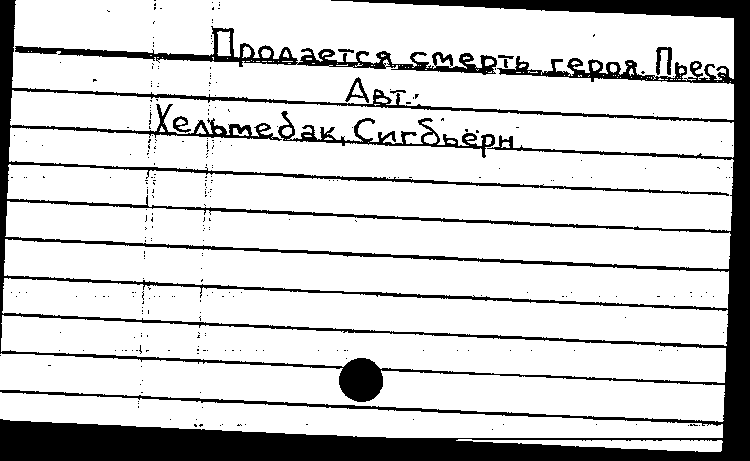 Продается смерть героя. Пьеса
Авт.:
Хельмебак, Сигбьёрн.